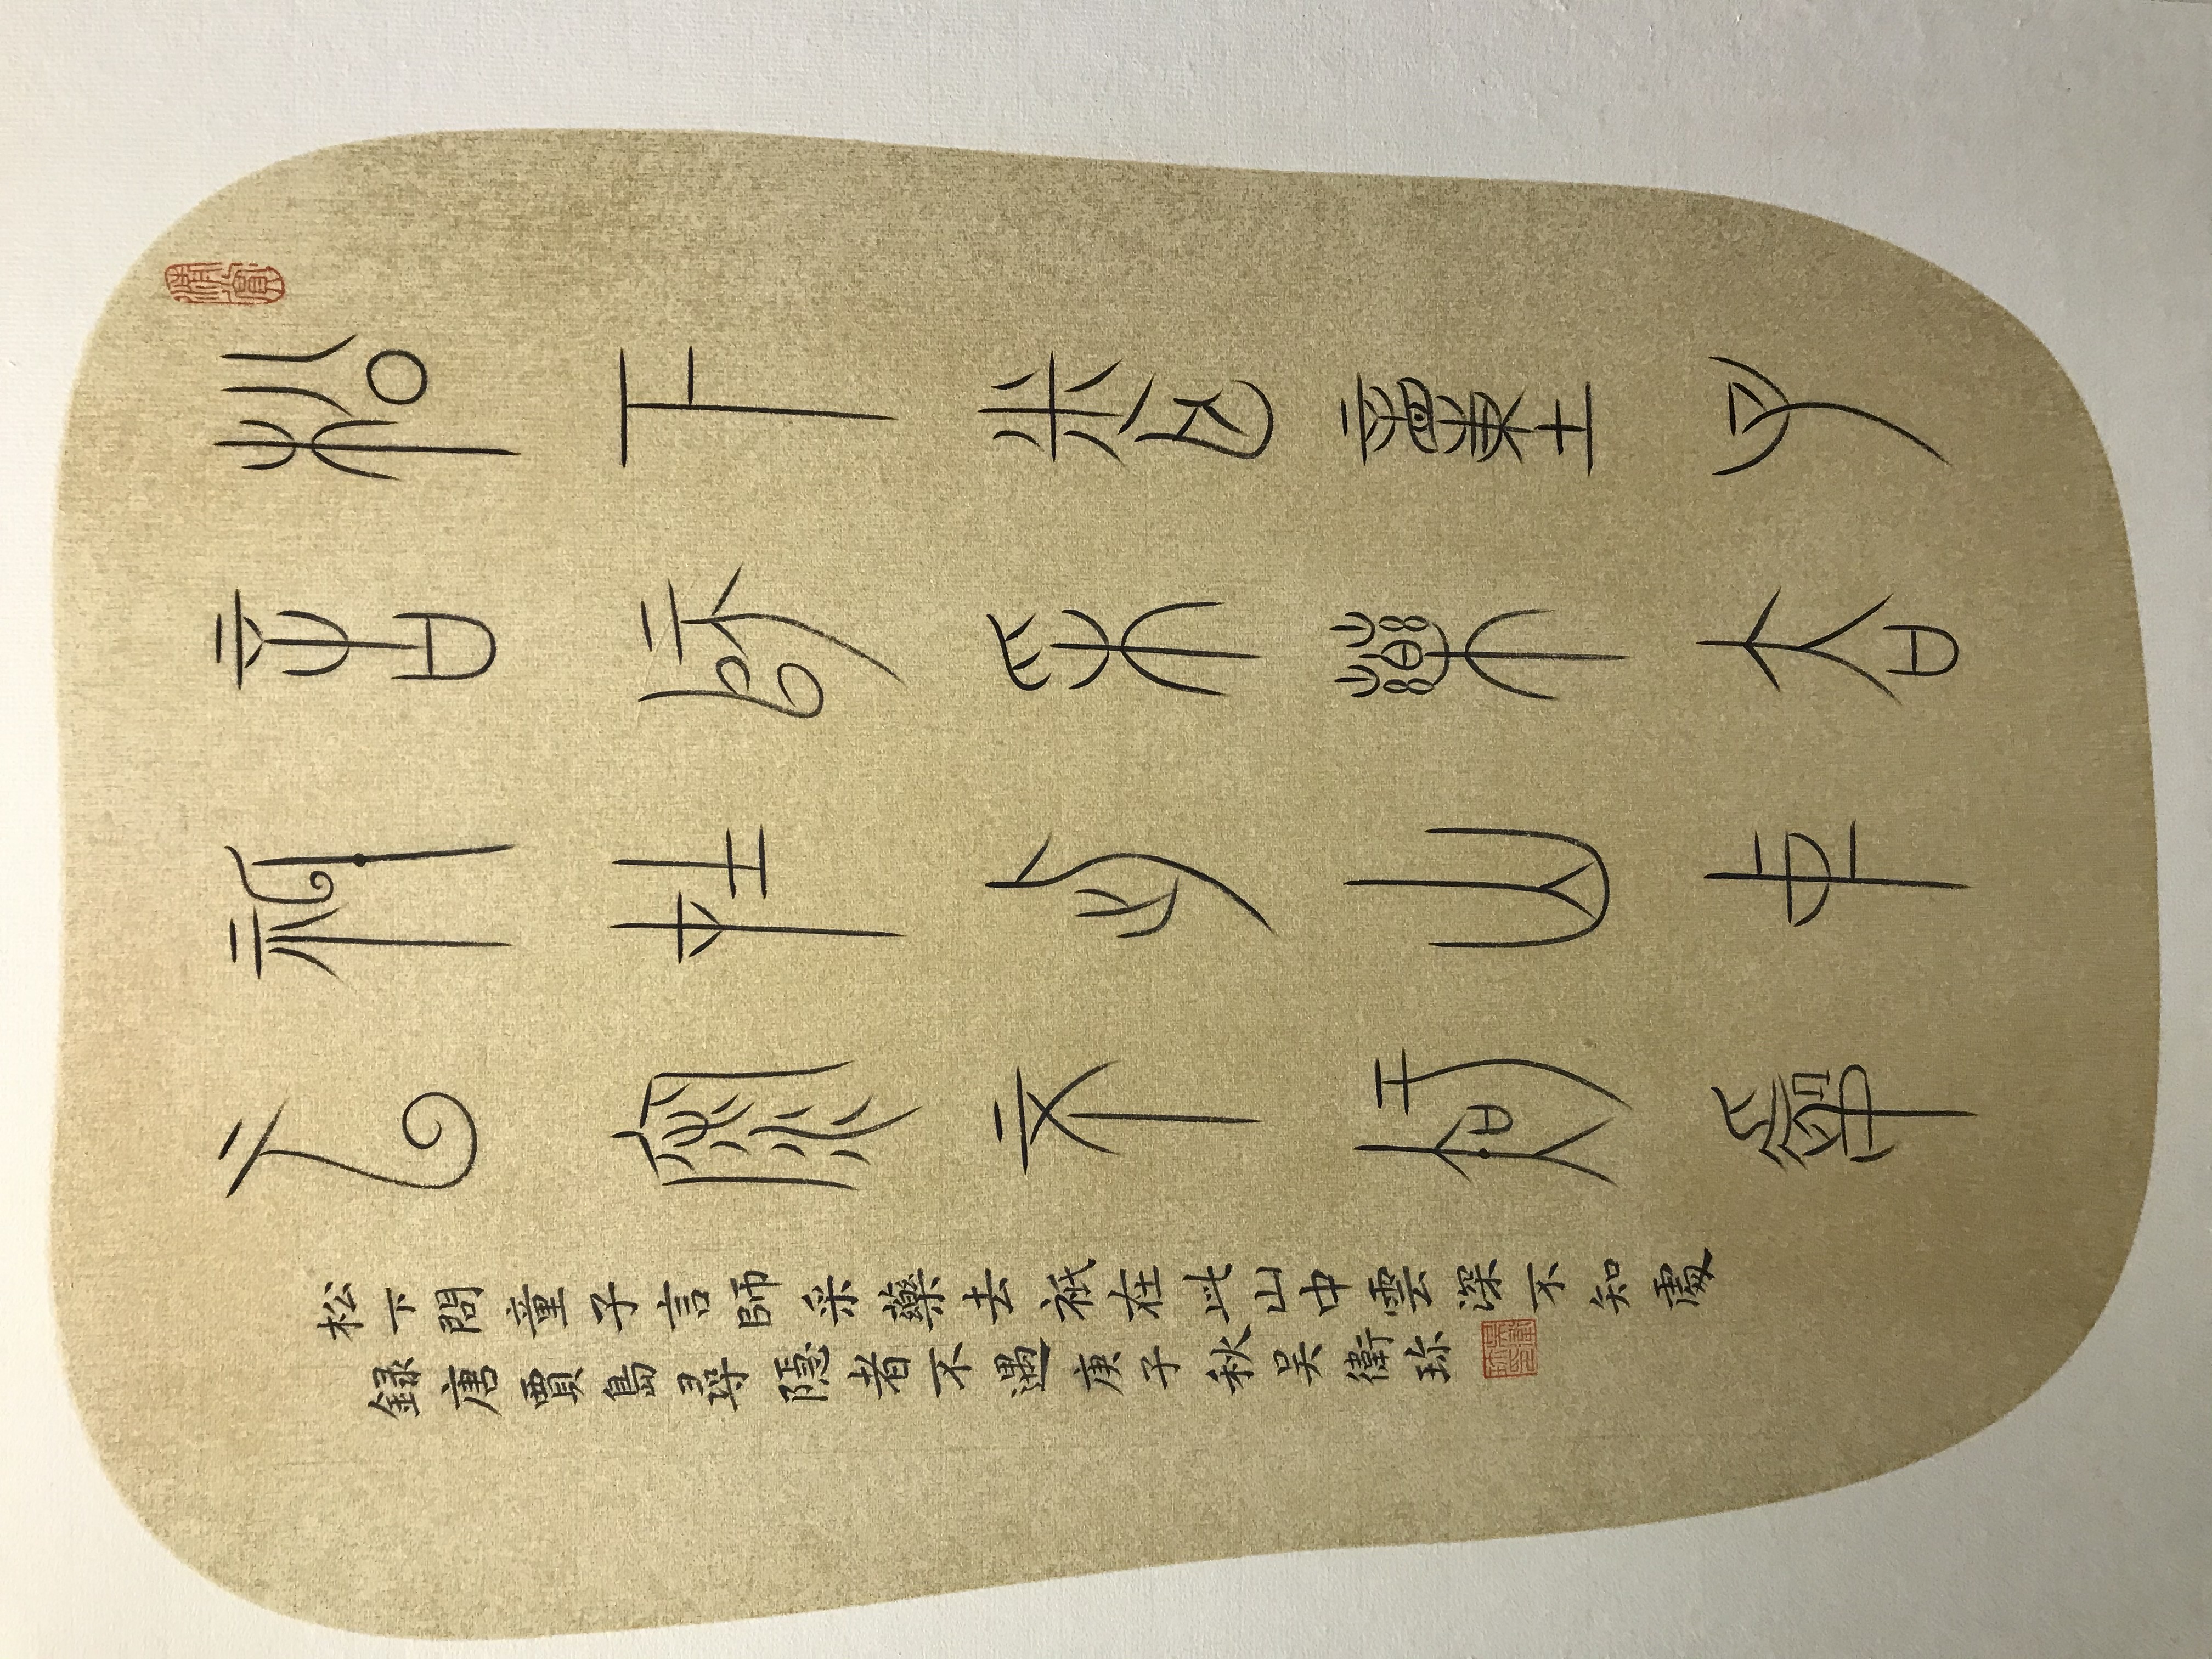 清賞
松下問童子
言師采藥去
祇在此山中
雲深不知處
松下問童子言師采藥去祇在此山中雲深不知處
録唐賈島尋隱者不遇庚子秋吴衛珎
吴衛珎印